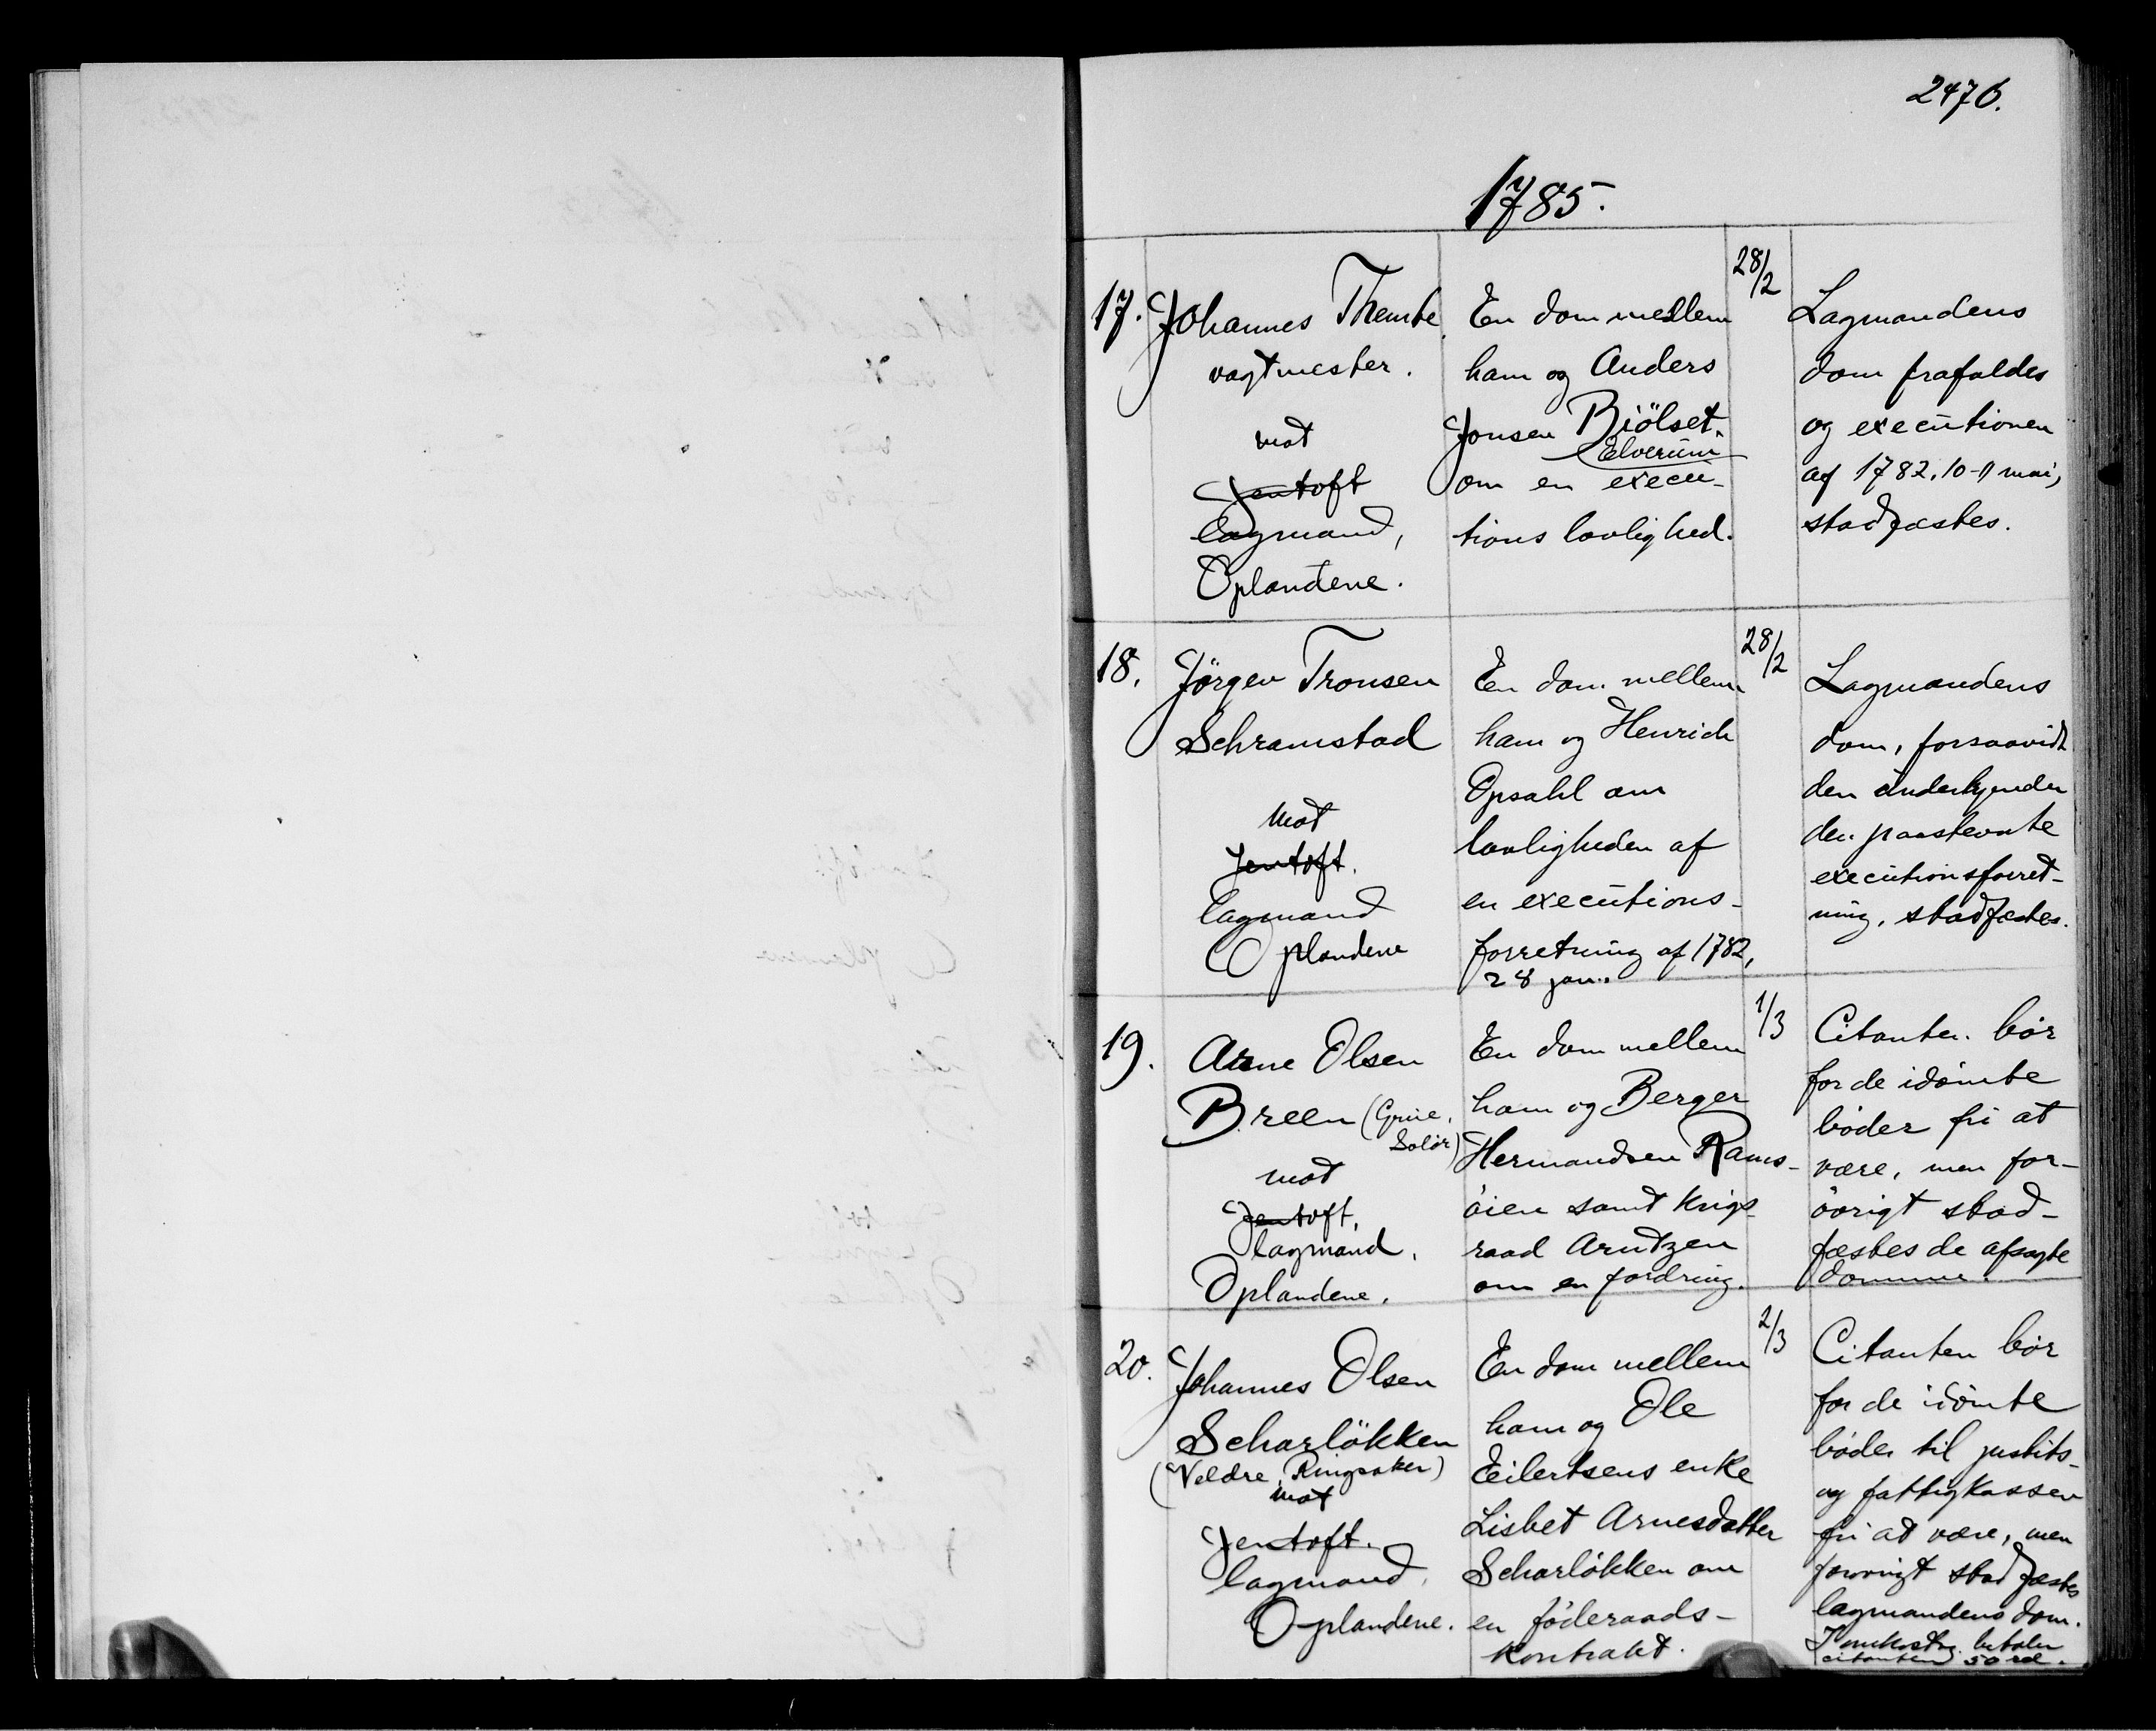 2476.
1785.
17. Johannes Thembe
vagtmester.
mot
Jentoft
lagmand,
Oplandene.
En dom mellem
ham og Anders
Jonsen Biölset,
Elverum
om en execu-
tions lovlighed.
28/2
Lagmandens
dom frafaldes
og executionen
af 1782, 10-11 mai,
stadfæstes.
18. Jörgen Tronsen
Schramstad
mot
Jentoft.
lagmand
Oplandene
En dom mellem
ham og Henrich
Opsahl om
lovligheden af
en executions-
forretning af 1782,
28 jan.
28/2
Lagmandens
dom, forsaavidt
den underkjender
den paastevnte
executionsforret-
ning, stadfæstes.
19. Arne Olsen
Breen (Grue,
Solör)
mot
Jentoft,
lagmand,
Oplandene.
En dom mellem
ham og Berger
Hermandsen Rams-
öien samt krigs-
raad Arntzen
om en fordring.
1/3
Citanten bör
for de idömte
böder fri at
være, men for-
övrigt stad-
fæstes de afsagte
domme.
20. Johannes Olsen
Scharlökken
(Veldre, Ringsaker)
mot
Jentoft.
lagmand,
Oplandene.
En dom mellem
ham og Ole
Eilertsens enke
Lisbet Arnesdatter
Scharlökken om
en föderaads-
kontrakt.
2/3
Citanten bör
for de idömte
böder til justits-
og fattigkassen
fri at være, men
forövrigt stadfæstes
lagmandens dom.
I omkostn. betaler
citanten 50 rd.